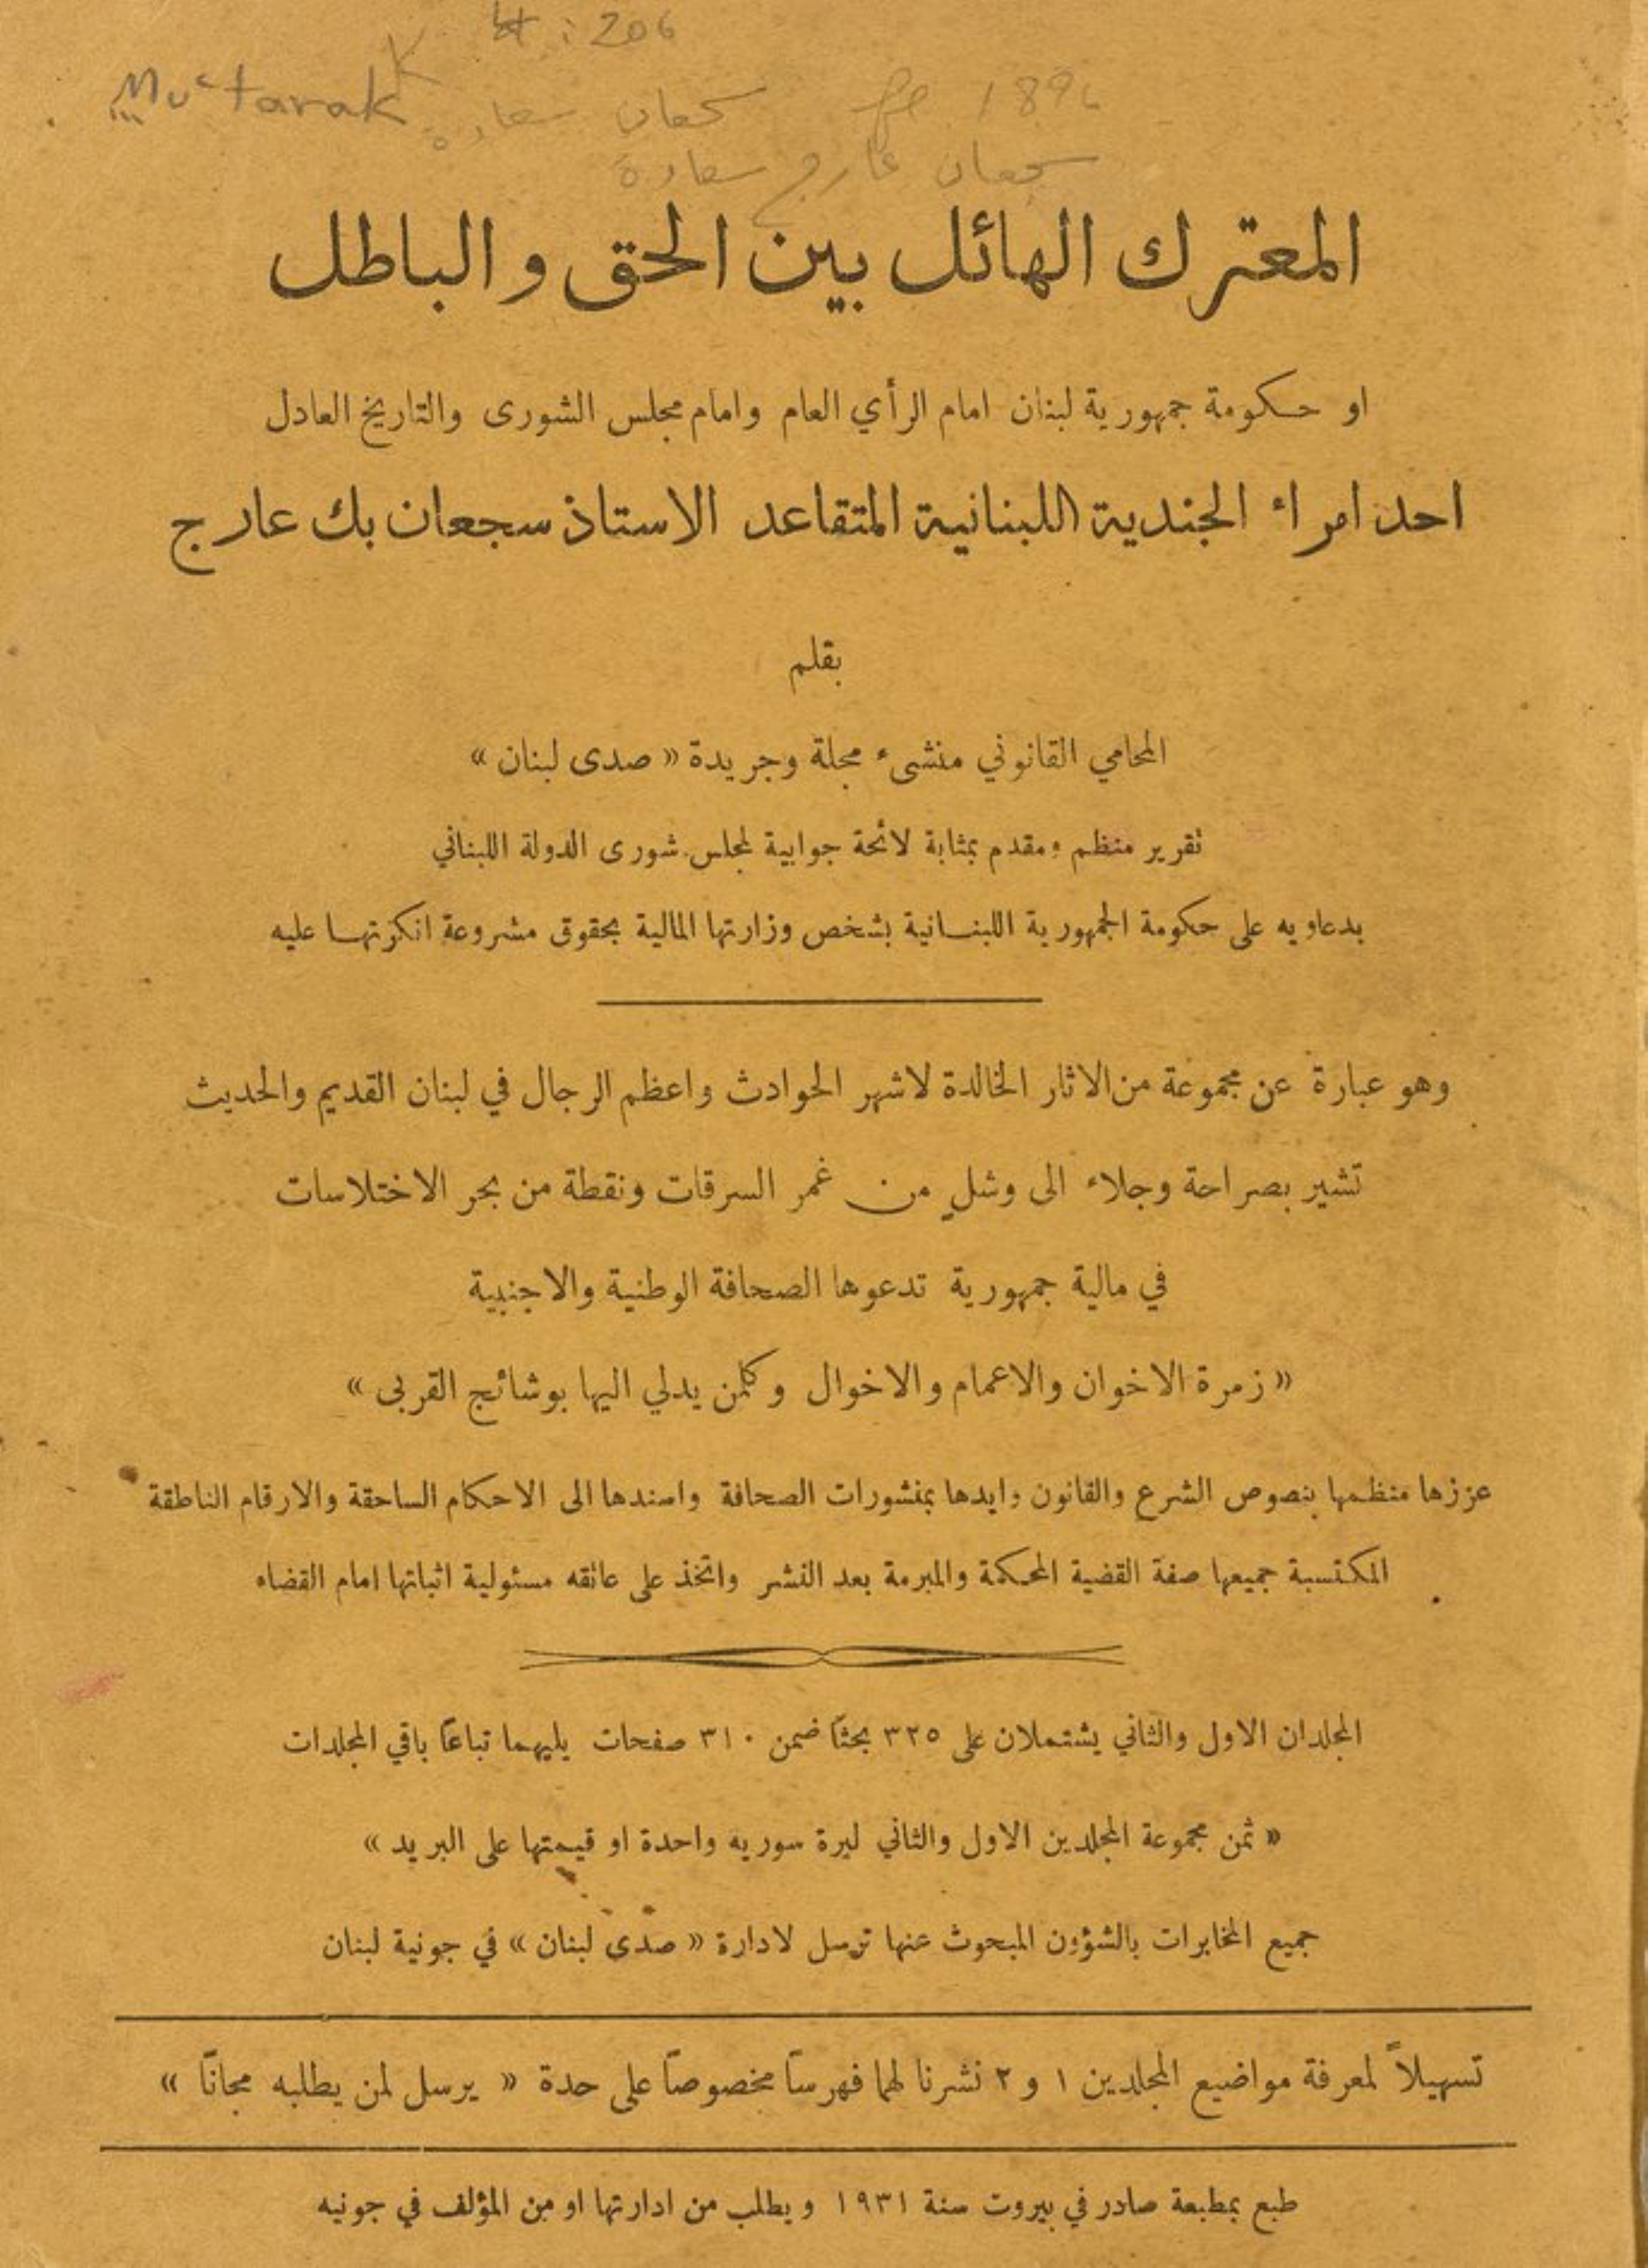 : 206
Mu'tarak
سجعان سعادة 189
سجعان عارج سعادة
المعترك الهائل بين الحق والباطل
او حكومة جمهورية لبنان امام الرأي العام وامام مجلس الشورى والتاريخ العادل
احد امراء الجندية اللبنانية المتقاعد الاستاذ سجعان بك عارج
بقلم
المحامي القانوني منشىء مجلة وجريدة « صدى لبنان »
تقرير منظم ومقدم بمثابة لائحة جوابية لمجلس شورى الدولة اللبناني
بدعاويه على حكومة الجمهورية اللبنانية بشخص وزارتها المالية بحقوق مشروعة انكرتها عليه
وهو عبارة عن مجموعة من الاثار الخالدة لاشهر الحوادث واعظم الرجال في لبنان القديم والحديث
تشير بصراحة وجلاء الى وشلٍ من غمر السرقات ونقطة من بحر الاختلاسات
في مالية جمهورية تدعوها الصحافة الوطنية والاجنبية
« زمرة الاخوان والاعمام والاخوال وكلمن يدلي اليها بوشائج القربى »
عززها منظمها بنصوص الشرع والقانون وايدها بمنشورات الصحافة واسندها الى الاحكام الساحقة والارقام الناطقة
المكتسبة جميعها صفة القضية المحكمة والمبرمة بعد النشر واتخذ على عاتقه مسئولية اثباتها امام القضاء
المجلدان الاول والثاني يشتملان على ٣٢٥ بحثاً ضمن ٣١٠ صفحات يليهما تباعاً باقي المجلدات
« ثمن مجموعة المجلدين الاول والثاني ليرة سوريه واحدة او قيمتها على البريد »
جميع المخابرات بالشؤون المبحوث عنها ترسل لادارة « صدى لبنان » في جونية لبنان
تسهيلاً لمعرفة مواضيع المجلدين ١ و ٢ نشرنا لهما فهرساً مخصوصاً على حدة « يرسل لمن يطلبه مجاناً »
طبع بمطبعة صادر في بيروت سنة ١٩٣١ ويطلب من ادارتها او من المؤلف في جونيه